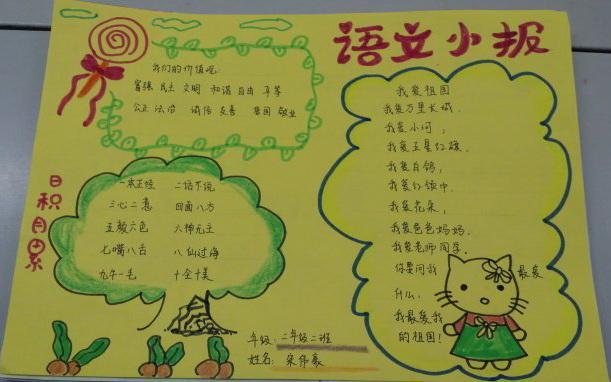 语文小报
我们的价值观:
富强 民主 文明 和谐 自由 平等
公正 法治 诚信 友善 爱国 敬业
日积月累
一本正经 二话不说
三心二意 四面八方
五颜六色 六神无主
七嘴八舌 八仙过海
九牛一毛 十全十美
我爱祖国
我爱万里长城,
我爱小河;
我爱五星红旗,
我爱白鸽;
我爱红领巾,
我爱花朵,
我爱爸爸妈妈,
我爱老师同学,
你要问我 最爱
什么,
我最爱我
的祖国!
年级:二年级二班
姓名: